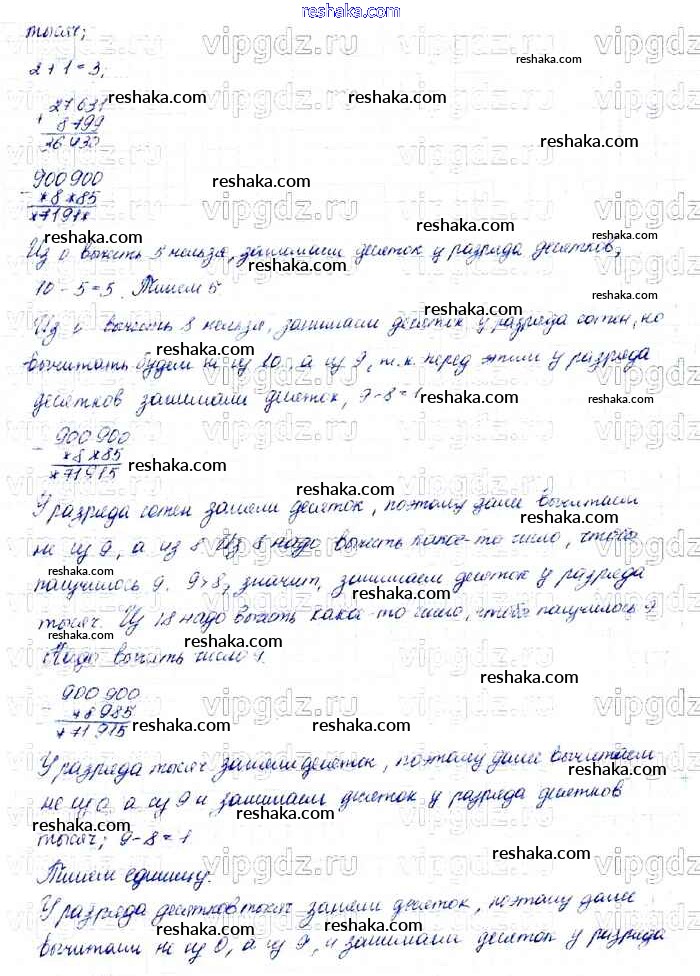 reshaka.com
тысяч;
2+1=3;
27631
+
8799
36430
900900
-
*8*85
*7191*
Из 0 вычесть 5 нельзя, занимаем десяток у разряда десятков,
10-5=5. Пишем 5
Из 0 вычесть 8 нельзя, занимаем десяток у разряда сотен, но
вычитать будем не из 10, а из 9, т.к. перед этим у разряда
десятков занимали десяток, 9-8=1
- 900900
*8*85
*71915
У разряда сотен заняли десяток, поэтому далее вычитаем
не из 9, а из 8. Из 8 надо вычесть какое-то число, чтобы
получилось 9. 9>8, значит, занимаем десяток у разряда
тысяч. Из 18 надо вычесть какое-то число, чтобы получилось 9
Надо вычесть число 9.
- 900900
*8985
*71915
У разряда тысяч заняли десяток, поэтому далее вычитаем
не из 0, а из 9 и занимаем десяток у разряда десятков
тысяч; 9-8=1
Пишем единицу.
У разряда десятков тысяч заняли десяток, поэтому далее
вычитаем не из 0, а из 9, и занимаем десяток у разряда